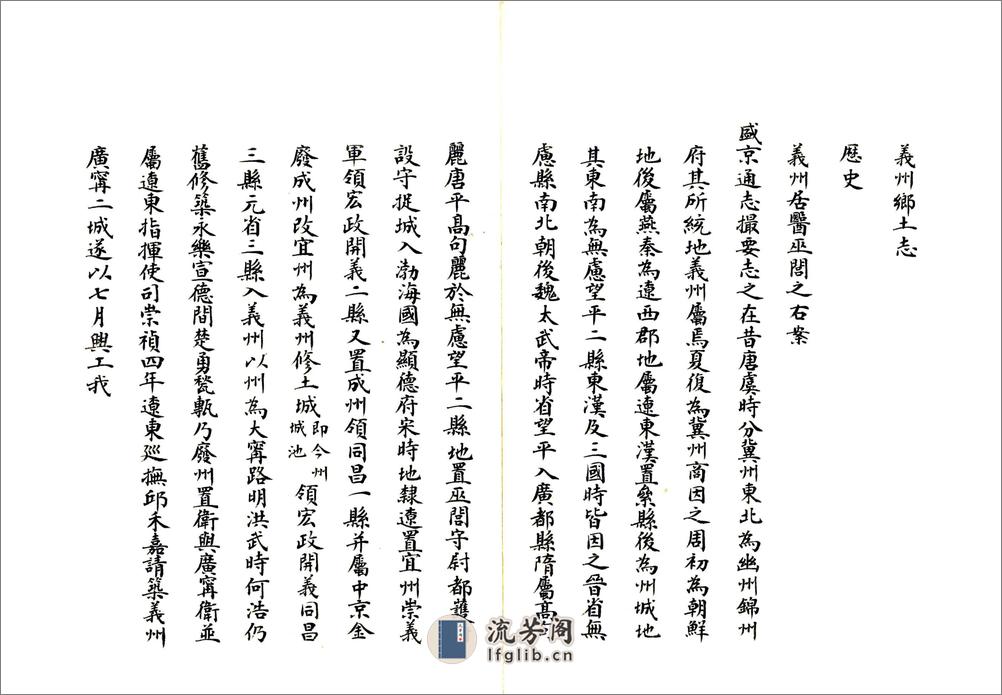 義州鄉土志
歷史
義州居醫巫閭之右案
盛京通志撮要志之在昔唐虞時分冀州東北為幽州錦州
府其所統地義州屬焉夏復為冀州商因之周初為朝鮮
地後屬燕秦為遼西郡地屬遼東漢置絫縣後為州城地
其東南為無慮望平二縣東漢及三國時皆因之晉省無
慮縣南北朝後魏太武帝時省望平入廣都縣隋屬高句
麗唐平高句麗於無慮望平二縣地置巫閭守尉都護
設守捉城入渤海國為顯德府宋時地隸遼置宜州崇義
軍領宏政開義二縣又置成州領同昌一縣并屬中京金
廢成州改宜州為義州修土城即今州城池領宏政開義同昌
三縣元省三縣入義州以州為大寗路明洪武時何浩仍
舊修築永樂宣德間楚勇甃甎乃廢州置衛與廣寗衛並
屬遼東指揮使司崇禎四年遼東巡撫邱禾嘉請築義州
廣寗二城遂以七月興工我
流芳阁
lfglib.cn